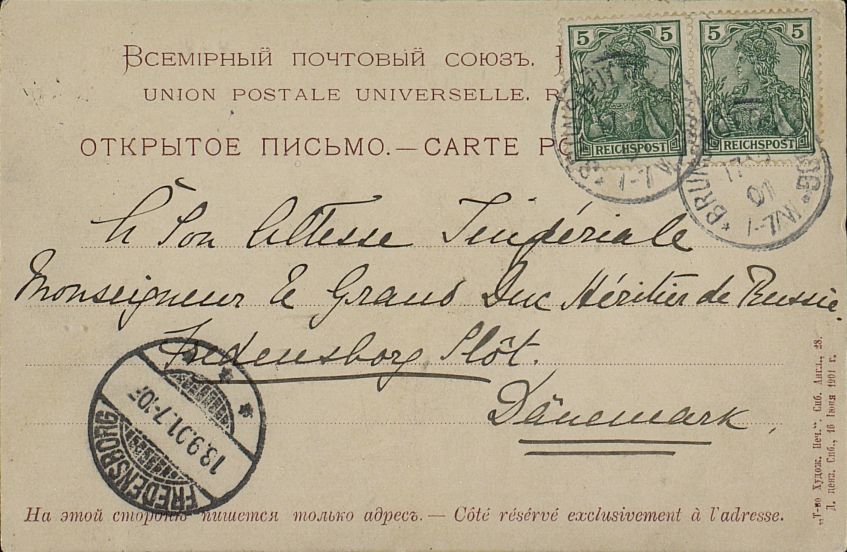 Всемірный почтовый союзъ.
UNION POSTALE UNIVERSELLE. R
ОТКРЫТОЕ ПИСЬМО.—CARTE PO
5 5
REICHSPOST
5 5
REICHSPOST
BRUNSBÜTTEL
BRUNSB
RG
17
01
*1-7.V.
À Son Altesse Impériale
Monseigneur le Grand Duc Héritier de Russie.
Fredensborg Slôt.
Dänemark,
FREDENSBORG
13.9.01.7-10F
На этой сторонѣ пишется только адресъ.— Côté résérvé exclusivement à l'adresse.
„Т-во Худож. Печ.“. Спб. Англ., 28.
Д. ценз. Спб., 16 Іюня 1901 г.